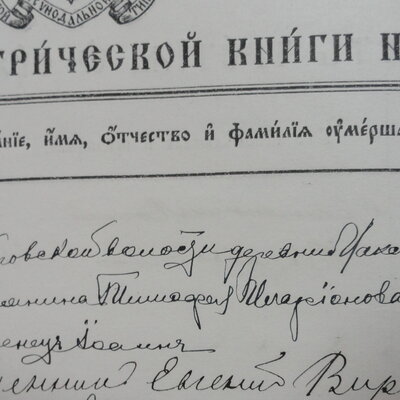 СУНОДАЛЬНОЙ
ТРИ́ЧЕСКОЙ КНИ́ГИ Н
А́НІЕ, И́МЯ, О́ТЧЕСТВО И ФАМИ́ЛІЯ ОУМЕ́РША
овской волости деревни
янина Тимофея Иларіонова
енецъ Іоаннъ
ленный Евгеній Вир